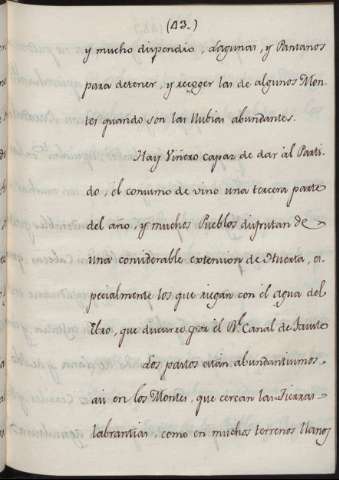 (43.)
y mucho dispendio, Lagunas, y Pantanos
para detener, y recoger las de algunos Mon-
tes quando son las llubias abundantes.
Hay Viñero capaz de dar al Parti-
do, el consumo de vino una tercera parte
del año, y muchos Pueblos disfrutan de
una considerable extension de Huerta, es-
pecialmente los que riegan con el agua del
Ebro, que discurre por el Rl. Canal de Tauste
Los pastos están abundantisimos
asi en los Montes, que cercan las Tierras
labrantias, como en muchos terrenos llanos